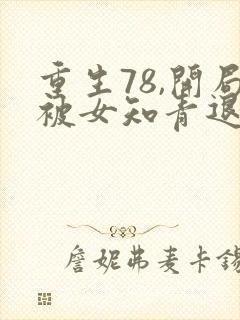 重生78,開局
被女知青退
詹妮弗麦卡錫